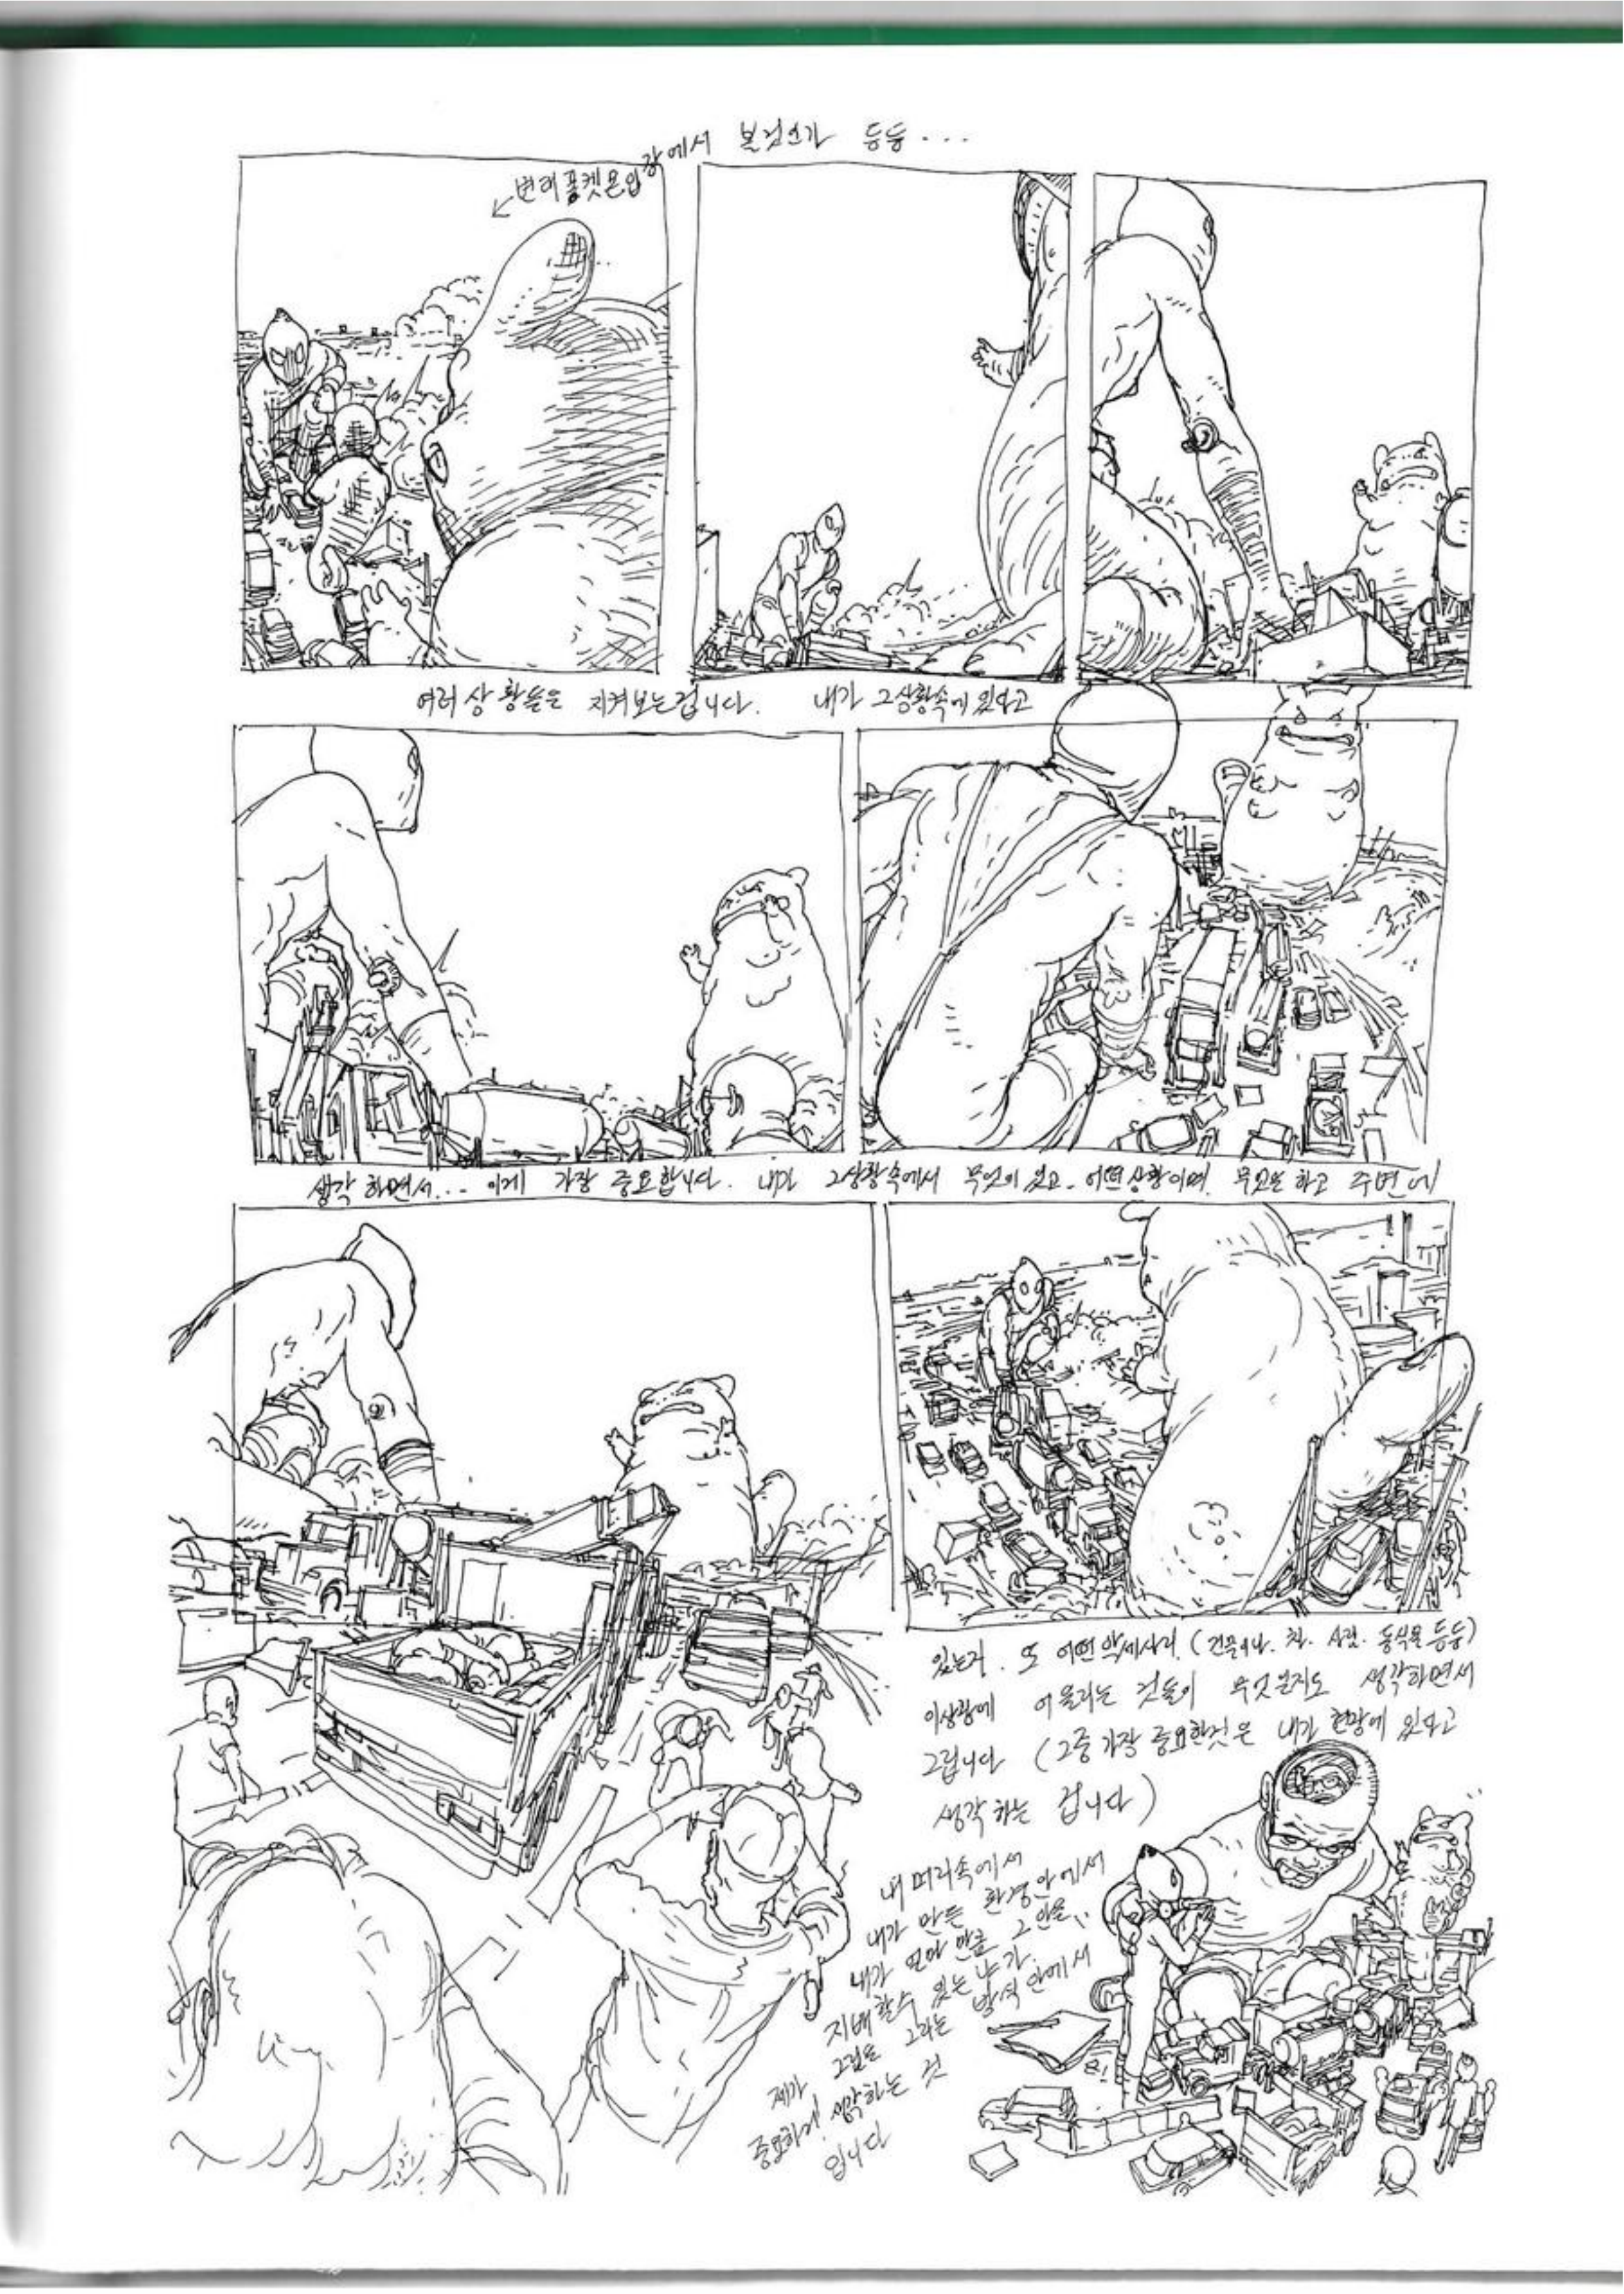 변태 포켓몬 입장에서 볼것인가 등등...
여러 상황들을 지켜보는겁니다. 내가 그상황속에 있다고
생각 하면서... 이게 가장 중요합니다. 내가 그상황속에서 무엇이 있고. 어떤 상황이며. 무엇을 하고 주변에
있는지. 또 어떤 악세사리 (건물이나. 차. 사람. 동식물 등등)
이상황에 어울리는 것들이 무엇인지도 생각하면서
그립니다 (그중 가장 중요한것은 내가 현장에 있다고
생각 하는 겁니다)
내 머리속에서
내가 만든 환경안에서
내가 얼마 만큼 그 안을..
지배할수 있는냐가.
그림을 그리는 방식 안에서
제가
중요하게 생각하는 것
입니다